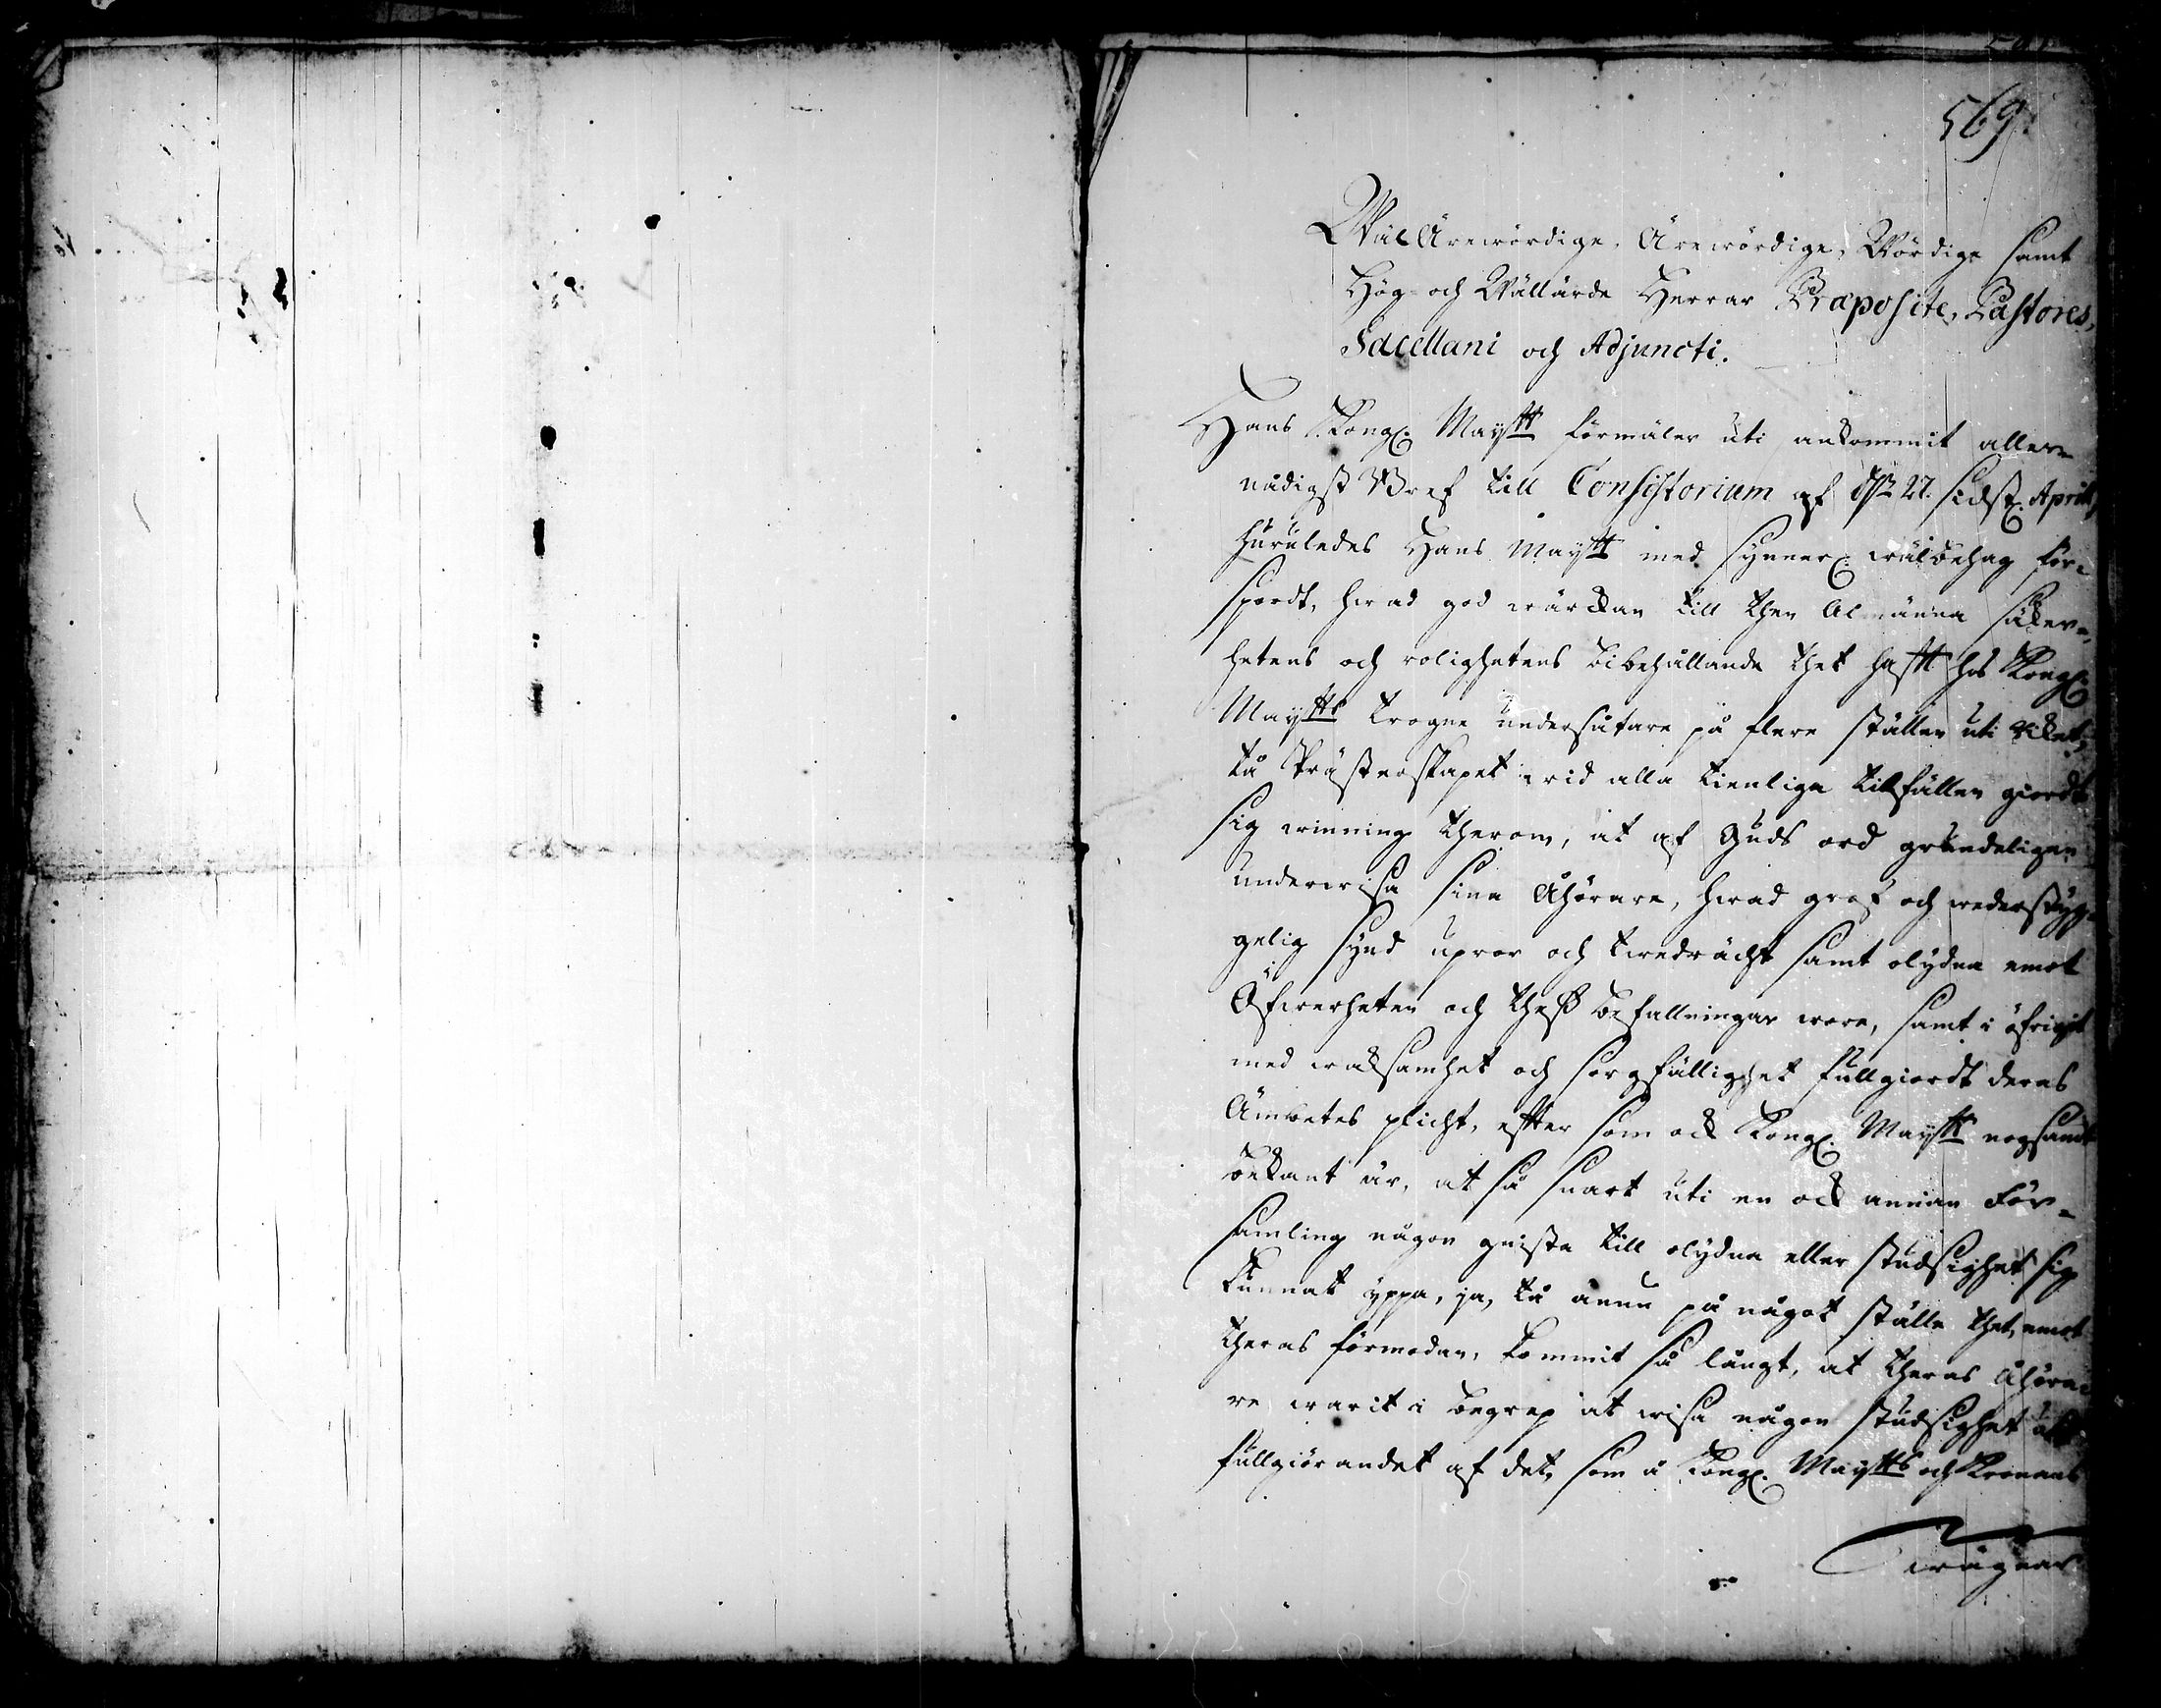 569.
WälÄrewördige, Ärewördige, Wördige samt
Hög- och Wällärde Herrar Præposite, Pastores,
Sacellani och Adjuncti.
Hans Kongl. Maystt förmäler uti ankommit aller-
nådigst Bref till Consistorium af d. 27. sidstl. April,
huruledes Hans Maystt med synnerl. wälbehag för-
spordt, hwad god wärckan till then Almänna säker-
hetens och rolighetens bibehållande thet hafft hos Kongl.
Maystts trogne undersåtare på flere ställen uti Riket,
tå Prästerskapet wid alla tienliga tilfällen giordt
sig winning therom, at af Guds ord grundeligen
underwisa sina Åhörare, hwad grof och wederstyg-
gelig synd upror och twedrächt samt olydna emot
Öfwerheten och thess befallningar wore, samt i öfrigit
med waksamhet och sorgfällighet fullgiordt deras
Ämbetes plicht, effter som ock Kongl. Maystt nogsamt
bekant är, at så snart uti en ock annan För-
samling någon gnista till olydna eller studsighet sig
kunnat yppa, ja, tå ännu på något ställe thet, emot
theras förmodan, kommit så långt, at theras Åhöra-
re warit i begrep at wisa någon studsighet
fullgiörandet af det, som å Kongl. Maystts och Kronans
wägnar